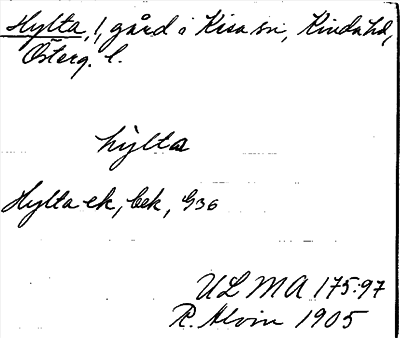 Hylta, !, gård i Kisa sn, Kinda hd,
Österg. l.
hỳlta
Hylta-ek, bek, G36
ULMA 175:97
R. Alvin 1905